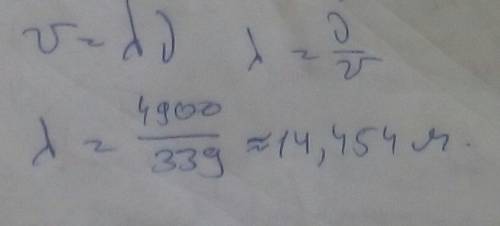 v = λν λ = ν/v
λ = 4900/339 ≈ 14,454 м.